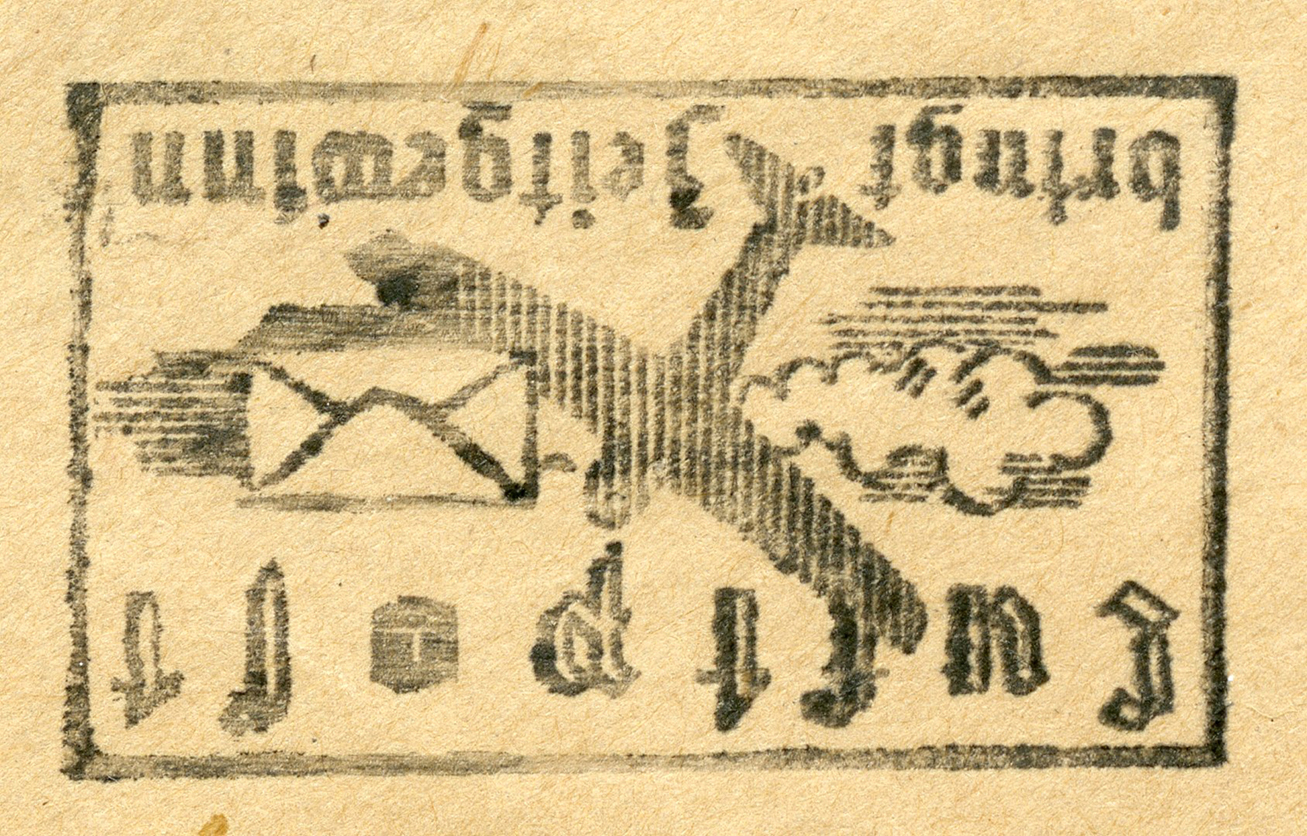 Luftpost
bringt Zeitgewinn